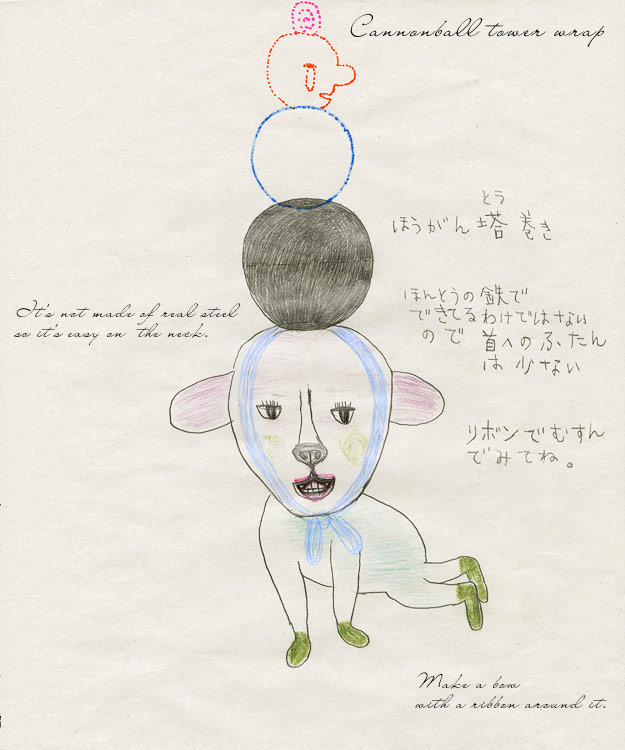 Cannonball tower wrap
とう
ほうがん塔巻き
ほんとうの鉄で
できてるわけではない
ので 首へのふたん
は少ない
It's not made of real steel
so it's easy on the neck.
リボンでむすん
でみてね。
Make a bow
with a ribbon around it.